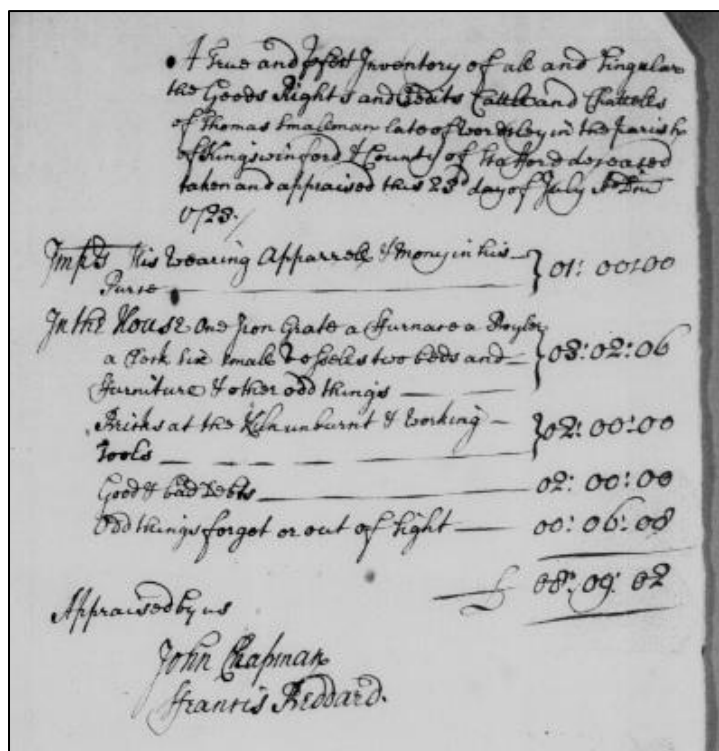 A True and pfect Inventory of all and Singular
the Goods Rights and Credits Cattle and Chattells
of Thomas Smaleman late of Wordsley in the parish
of Kingswinford & County of Stafford deceased
taken and appraised this 23d day of July Ao Dni
1723./
Impris His Wearing Apparrell & Mony in his
Purse 01: 00: 00
In the House One Iron Grate a Furnace a Boyler
a Clock Six small Vessells two beds and 03: 02: 06
Furniture & other odd things
Bricks at the Kiln unburnt & Working
Tools 02: 00: 00
Good & bad Debts 02: 00: 00
Odd things forgot or out of Sight 00: 06: 08
£ 08: 09: 02
Appraised by us
John Chapman
Francis Beddard.